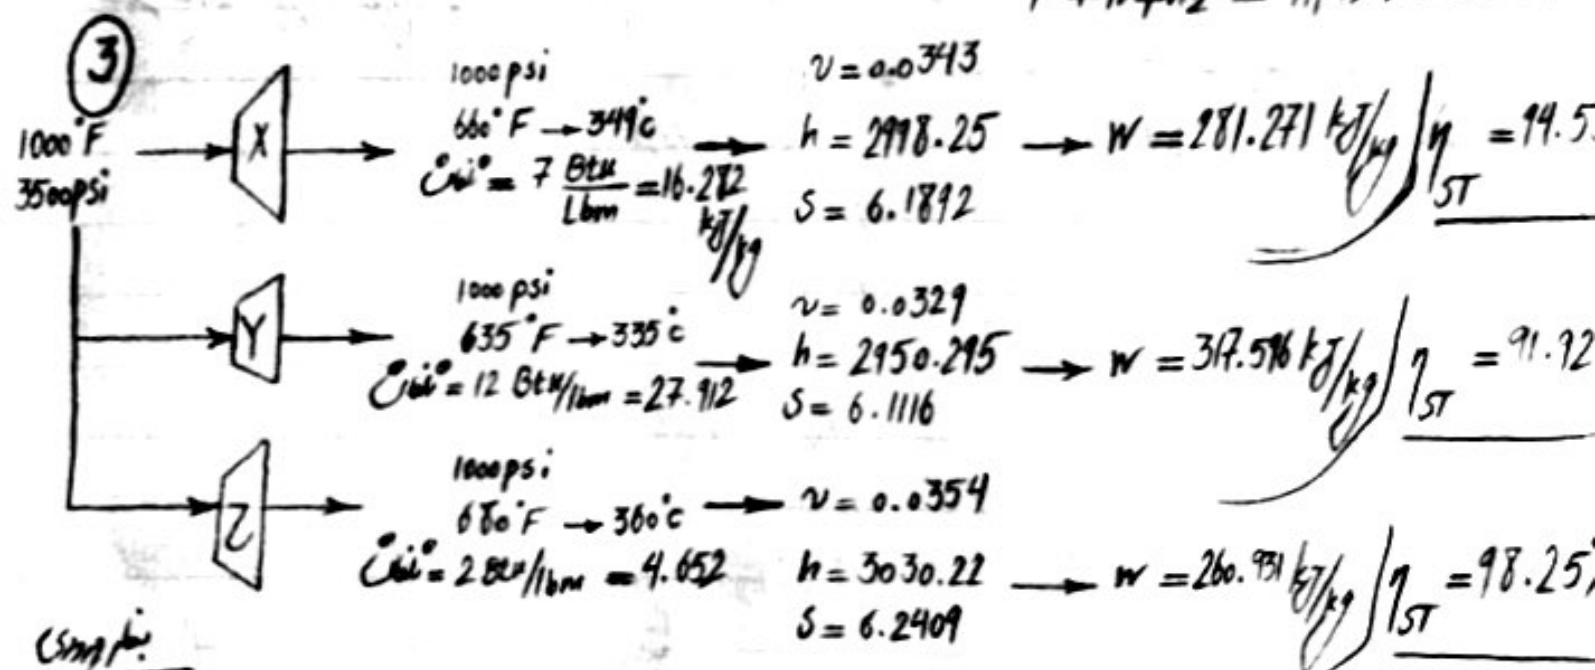 3
1000°F
3500psi
X
1000psi
660°F → 349°C
= 7 Btu/Lbm = 16.282 kJ/kg
v = 0.0343
h = 2998.25
s = 6.1892
W = 281.271 kJ/kg
η_ST = 94.5
Y
1000psi
635°F → 335°C
= 12 Btu/lbm = 27.912
v = 0.0329
h = 2950.295
s = 6.1116
W = 317.596 kJ/kg
η_ST = 91.92
Z
1000psi
680°F → 360°C
= 2 Btu/lbm = 4.652
v = 0.0354
h = 3030.22
s = 6.2409
W = 260.931 kJ/kg
η_ST = 98.25%